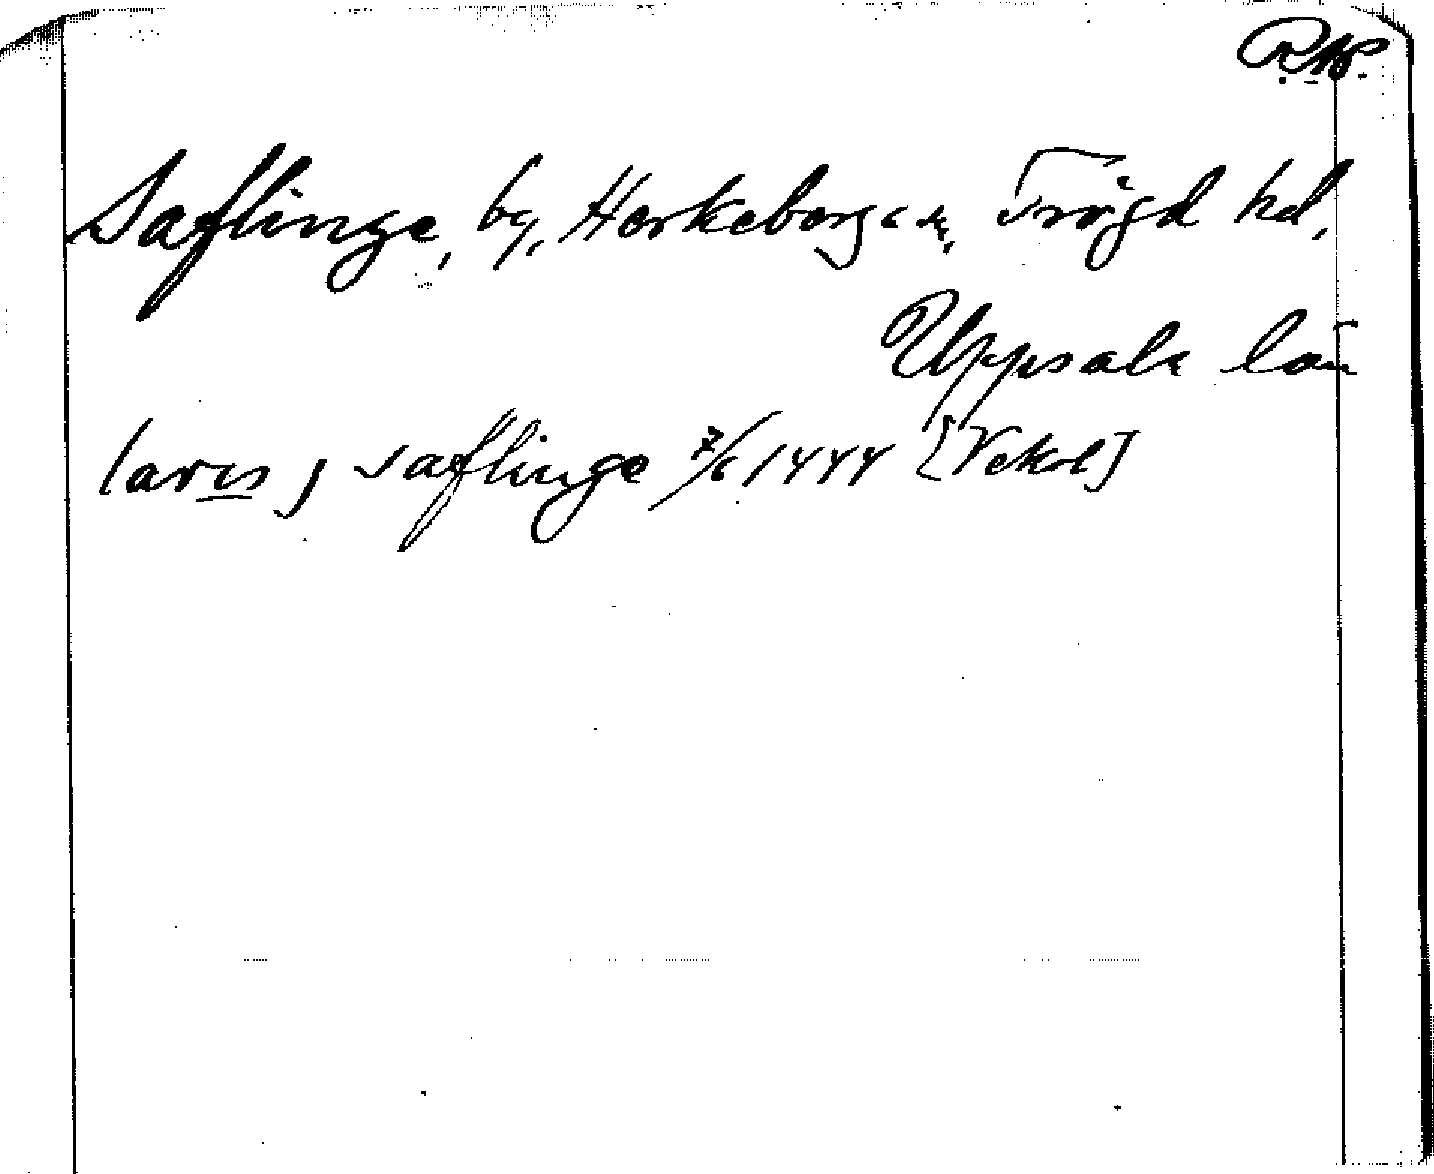 Saflinge, by, Härkeberga sn, Trögd hd,
Uppsala län
laris j saflinge 7/6 1444 [Vekol]